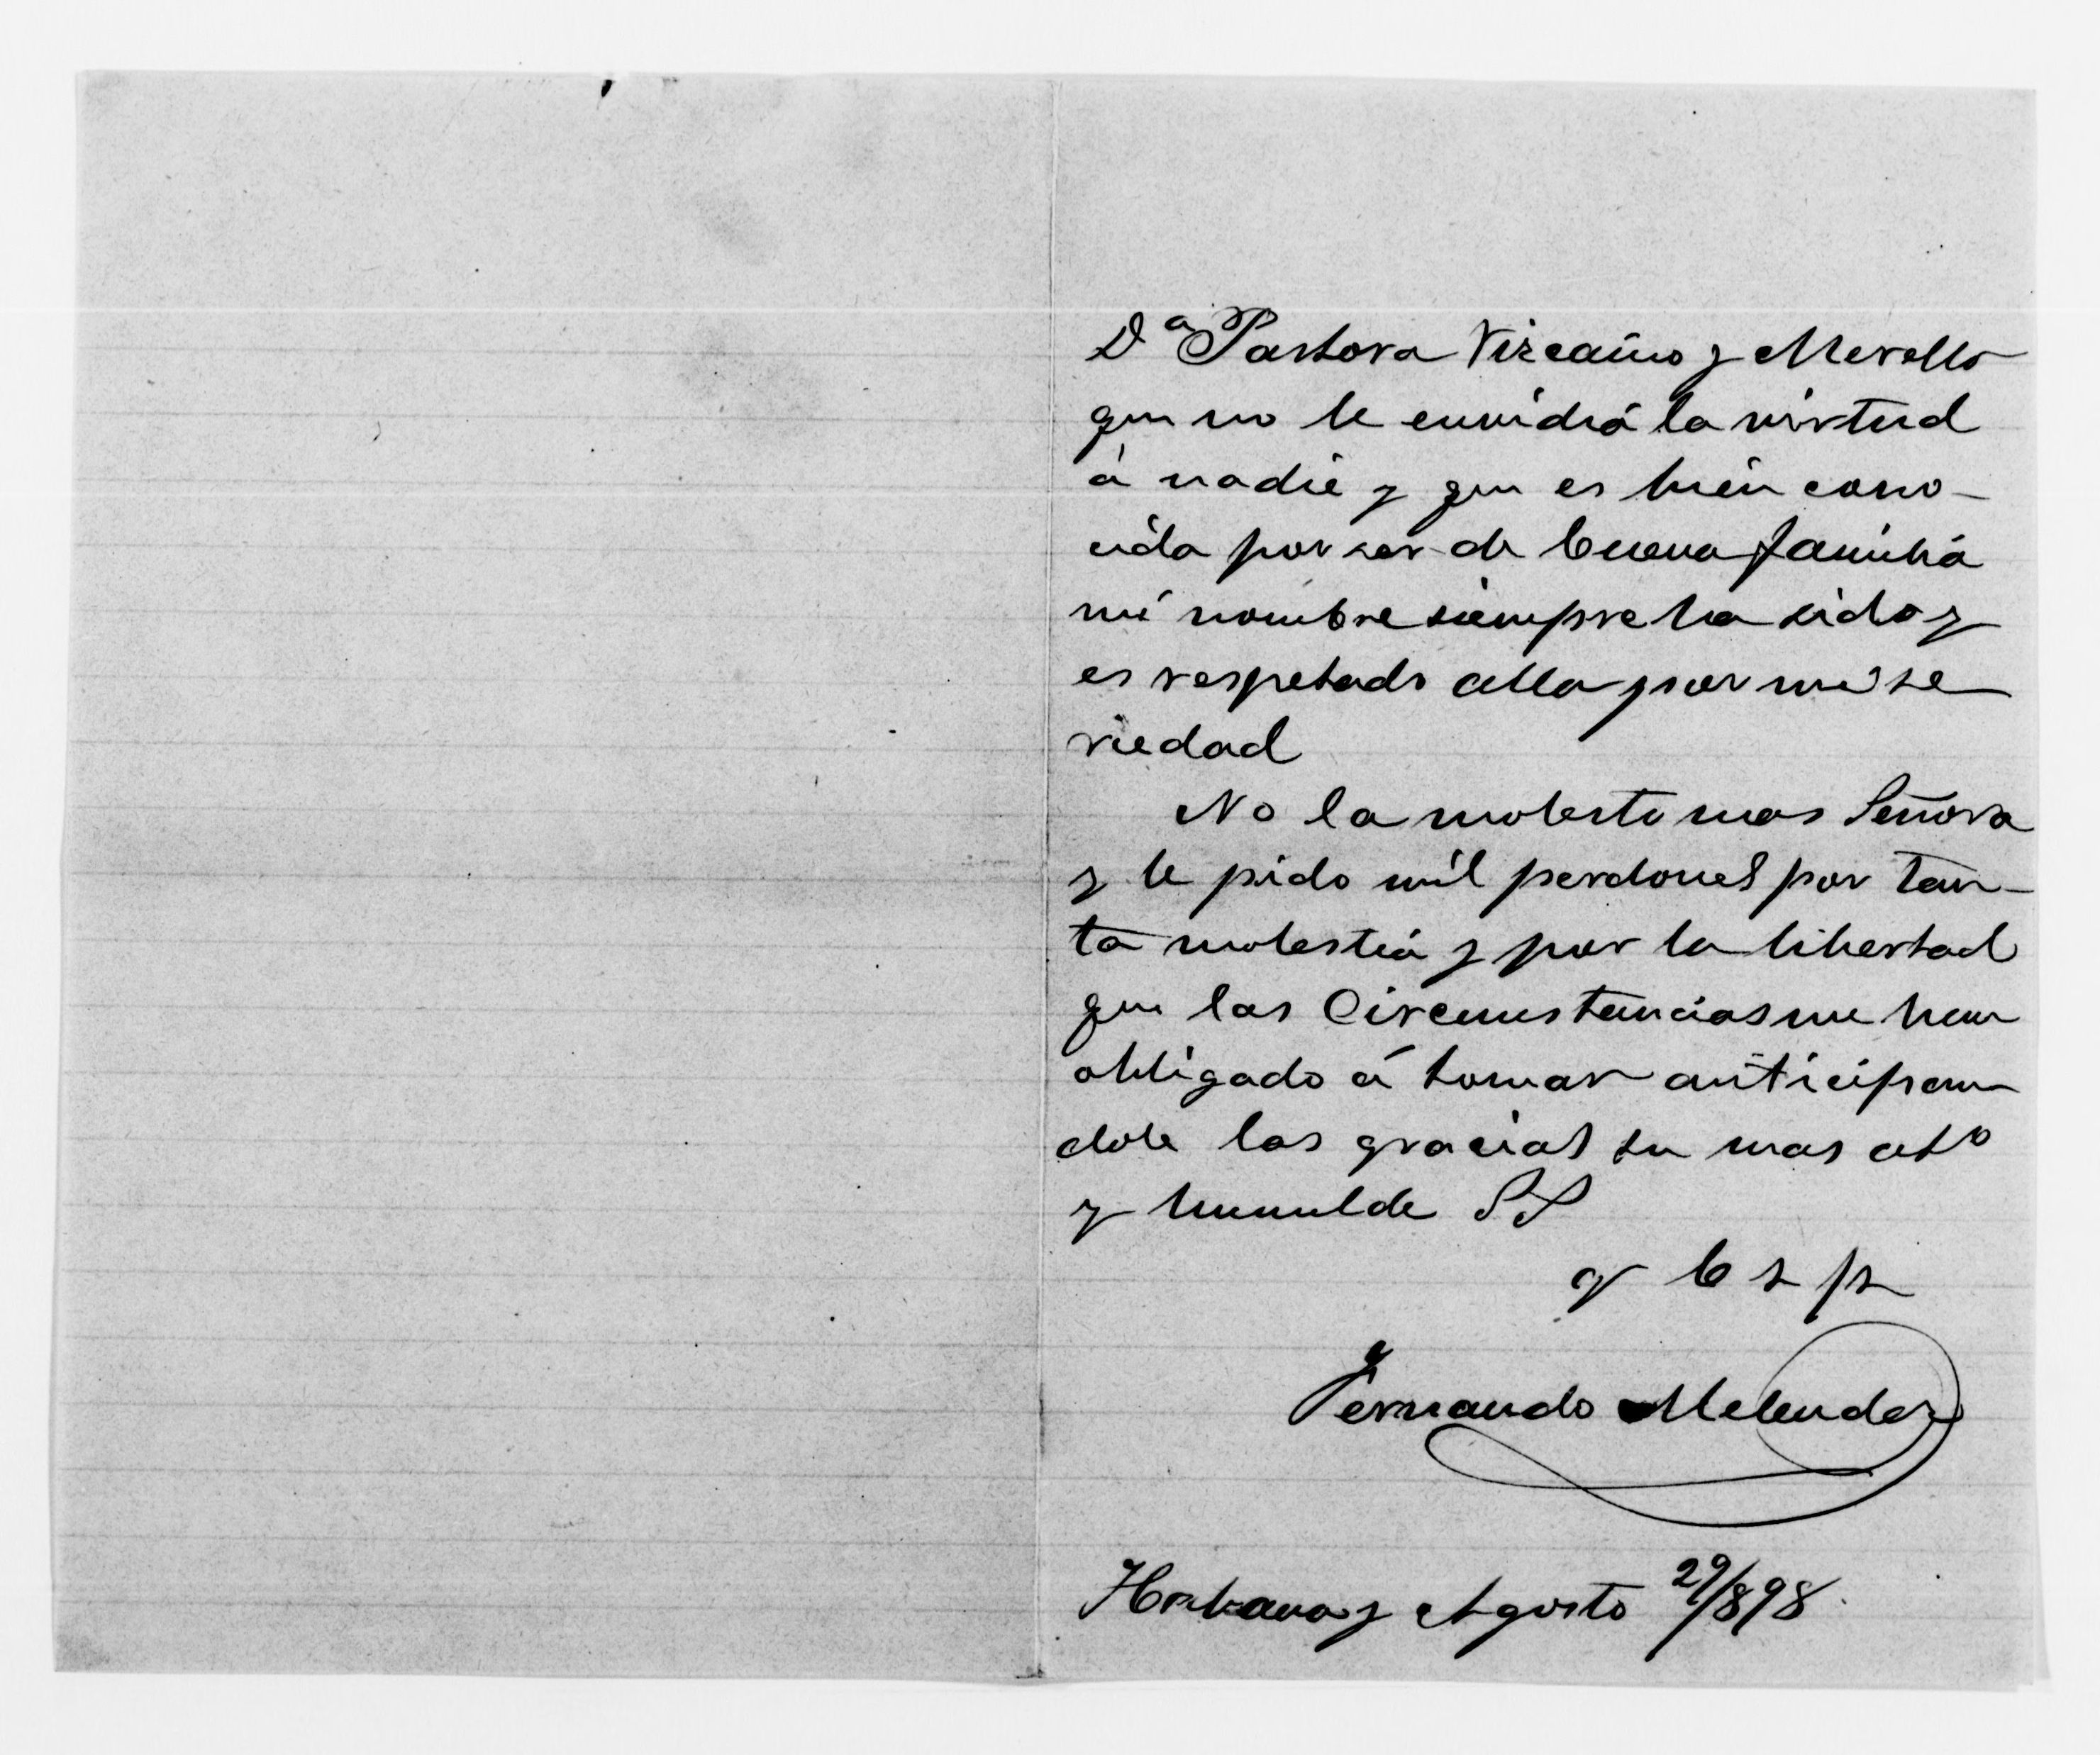 Dª Pastora Vizcaino y Merello
que no le envidiá la virtud
á nadie y que es bién cono-
cida por ser de buena familiá
mi nombre siempre ha sido y
es respetado alla por mi se
riedad
No la molesto mas Señora
y le pido mil perdones por tan-
ta molestiá y por la libertad
que las Circunstancias me han
obligado á tomar anticipan
dole las gracias su mas atº
y humilde SS
q b s p
Fernando Melendez
Habana y Agosto 29/898.